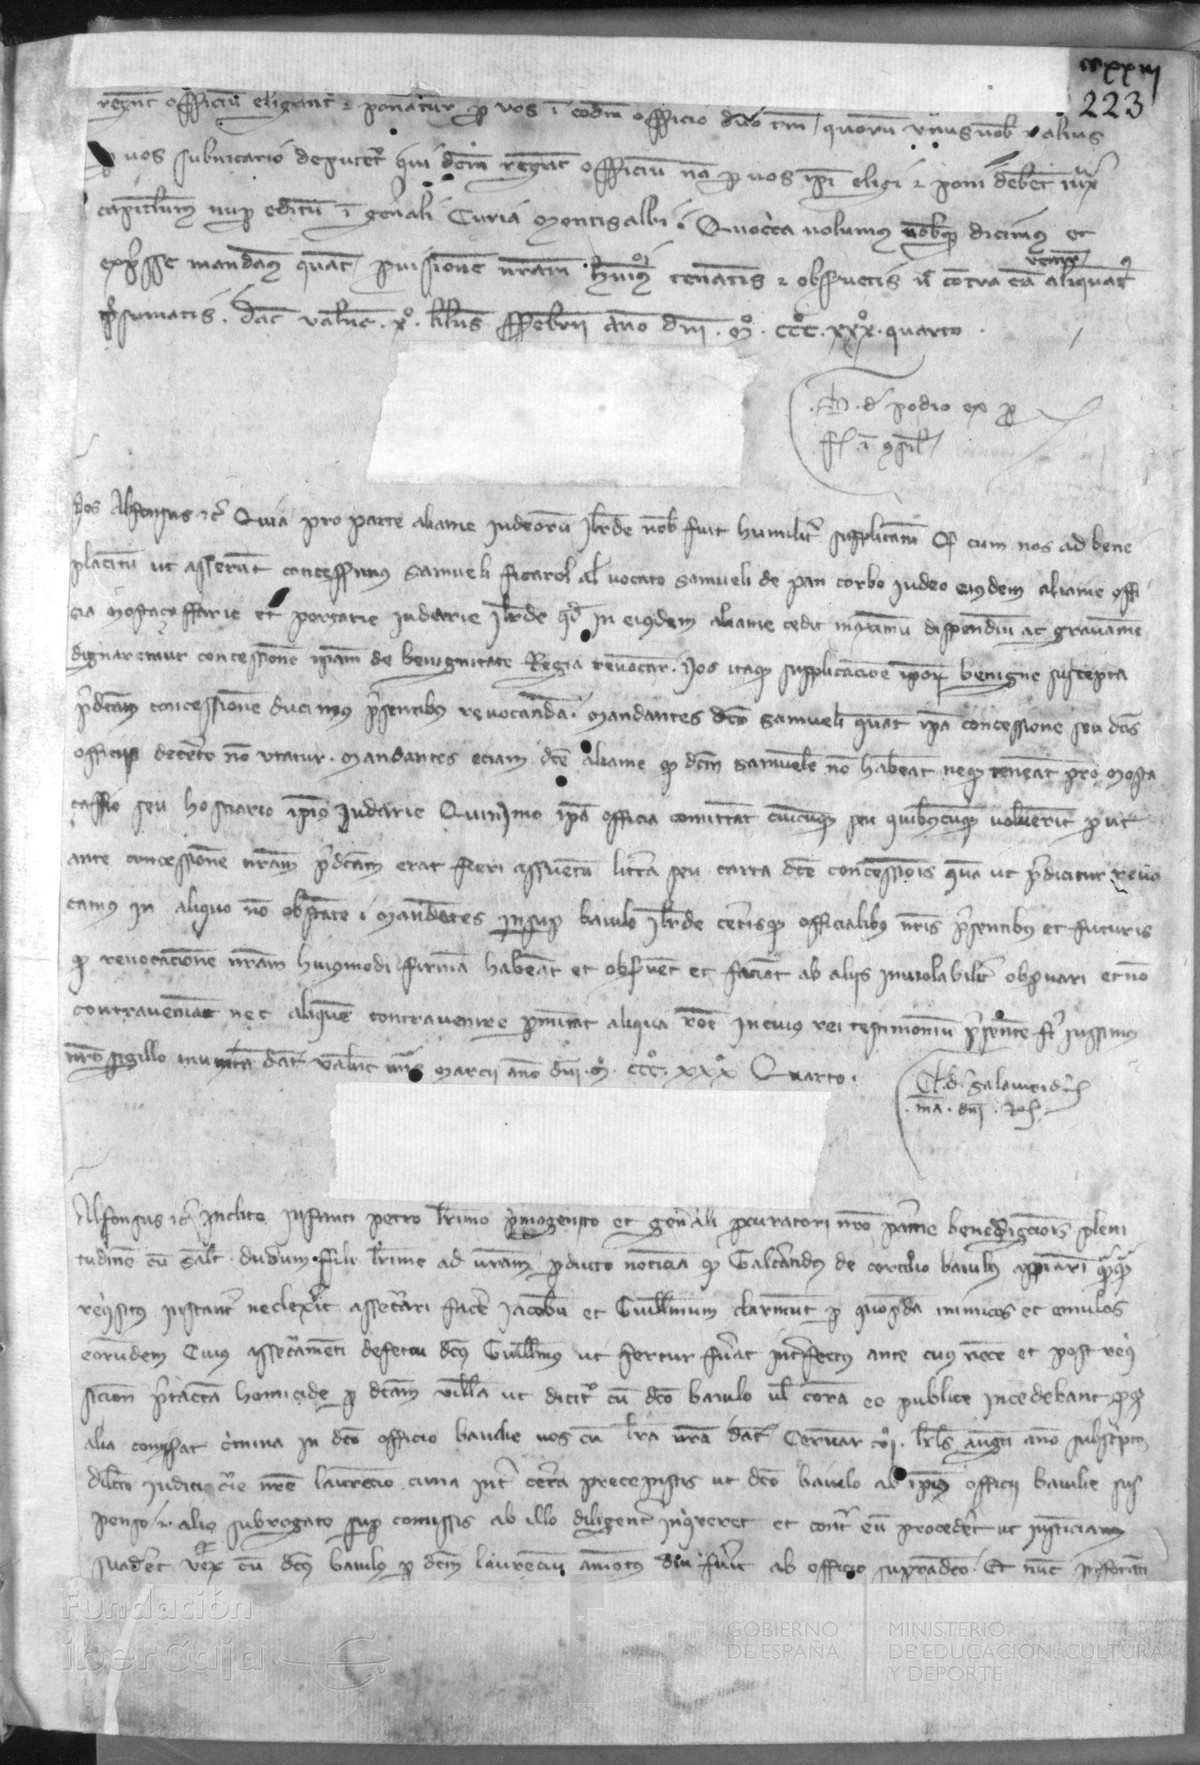 ccxxiii
223
regunt officium eligantur et ponantur per vos in eodem officio duo tantum quorum unus nobis et alius
per vos subvicario deputetur qui dictum regant officium non per vos ipsi eligi et poni debent iuxta
capitulum nuper editum in generali Curia Montisalbi. Quocirca volumus vobisque dicimus et
expresse mandamus quatenus provisionem nostram huiusmodi teneatis et observetis nec contra eam aliquatenus venire
presumatis. Dat. Valencie. Xº. kalendas Febroarii anno domini. Mº. CCCº. XXXº. quarto.
de podio ex p
f. in consil.
Nos Alfonsus etc. Quia pro parte aliame iudeorum Ilerde nobis fuit humiliter supplicatum quod cum nos ad bene
placitum ut asserunt concesserimus Samueli ficarol alias vocato Samueli de pan corbo iudeo eiusdem aliame offi
cia Mostaçaffarie et portarie iudarie Ilerde quod in eiusdem aliame cedit maximum dispendium ac gravamen
dignaremur concessionem ipsam de benignitate Regia revocare. Nos itaque supplicacione ipsorum benigne suscepta
predictam concessionem ducimus presentibus revocandam. Mandantes dicto Samueli quatenus ipsa concessione seu dictis
officiis decetero non utatur. Mandantes eciam dicte aliame quod dictum Samuelem non habeant neque teneant pro Mosta
çaffio seu hostiario ipsius Judarie Quinimo ipsa officia comittant cuicumque seu quibuscumque voluerint prout
ante concessionem nostram predictam erat fieri assuetum littera seu carta dicte concessionis quam ut predicitur revo
camus in aliquo non obstante. Mandantes insuper baiulo Ilerde ceterisque officialibus nostris presentibus et futuris
quod revocacionem nostram huiusmodi firmam habeant et observent et faciant ab aliis inviolabiliter observari et non
contraveniant nec aliquem contravenire permitant aliqua racione In cuius rei testimonium presentem fieri iussimus
nostro sigillo munitam Dat. Valencie Marcii anno domini. Mº. CCCº. XXXº Quarto.
ma. dni. Reg.
Alfonsus etc. Inclito Infanti Petro karissimo primogenito et generali procuratori nostro paterne benediccionis pleni
tudinem cum salute. Dudum fili karissime ad vestram perducto noticiam quod Galcerandus de baiulus
requisitus instanter neclexerit assecurari facere Jacobum et Guillelmum per quosdam inimicos et emulos
eorundem Cuius assecuramenti defectu dictus Guillelmus ut fertur fuerat interfectus ante cuius necem et post requi
sicionem pretactam homicide per dictam villam ut dicitur cum dicto baiulo vel coram eo publice incedebant
alia comiserat crimina in dicto officio baiulie vos cum littera vestra dat. kalendas augusti anno subscripto
dilecto iudici curie nostre laurencio çima inter cetera precepistis ut dicto baiulo ab ipsius officii baiulie sus
penso et alio subrogato super comissis ab illo diligenter inquireret et contra eum procederet ut iusticiam
suaderet Verum cum dictus baiulus per dictum laurencium amotus diu fuerit ab officio supradicto. Et nunc
Fundación
iberCaja
GOBIERNO
DE ESPAÑA
MINISTERIO
DE EDUCACIÓN, CULTURA
Y DEPORTE